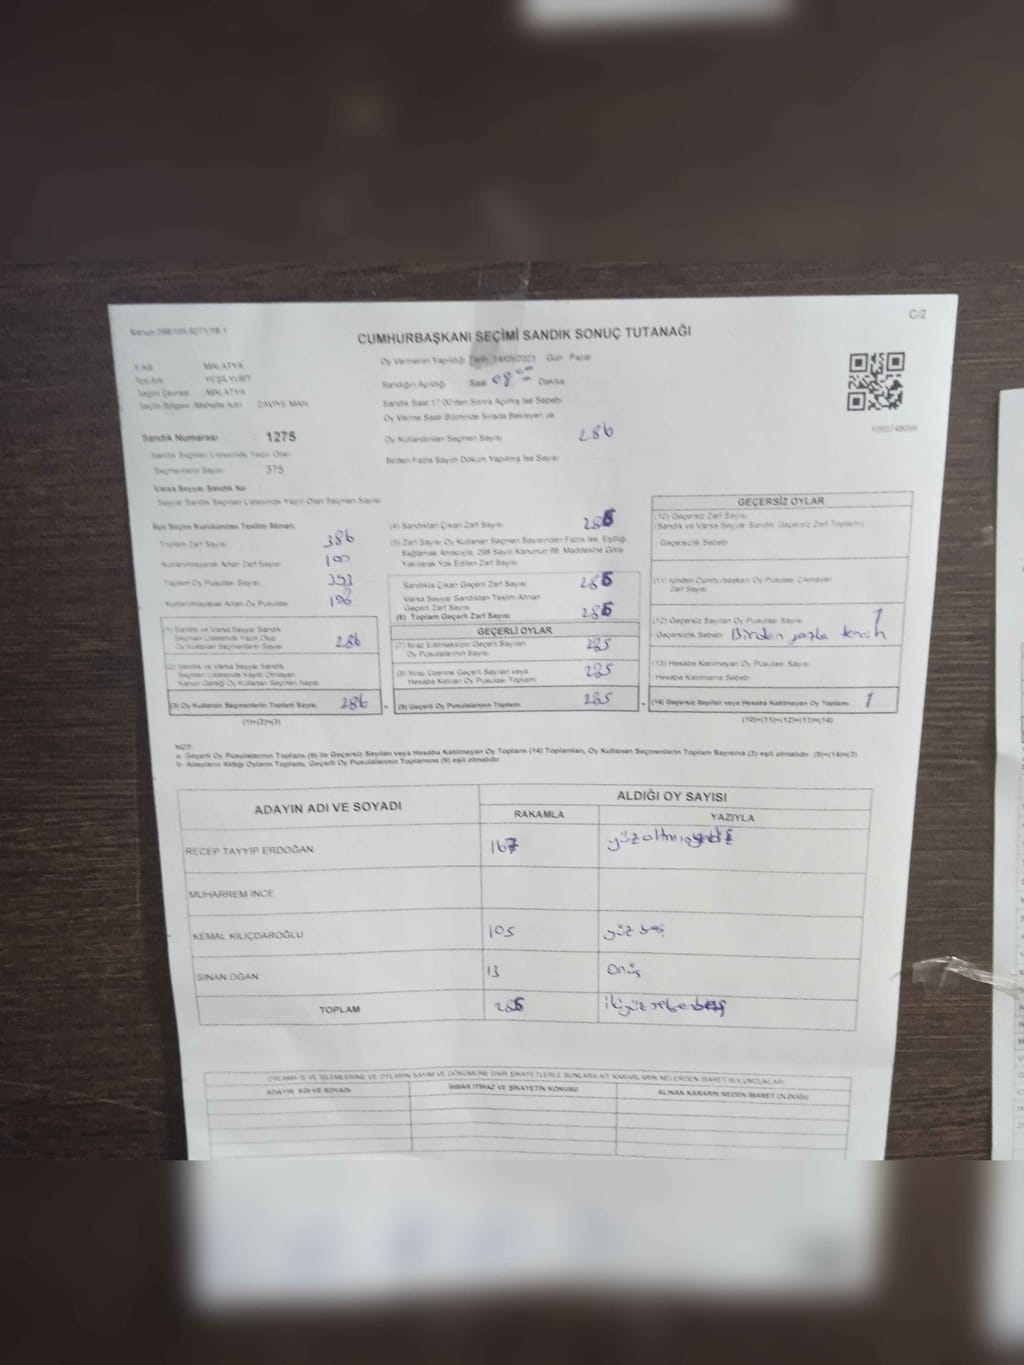 C/2
CUMHURBAŞKANI SEÇİMİ SANDIK SONUÇ TUTANAĞI
MALATYA
YEŞİLYURT
MALATYA
Oy Vermenin Yapıldığı Tarih: 14/05/2023 Gün: Pazar
Sandığın Açıldığı Saat 08:00 Dakika
Sandık Saat 17:00'den Sonra Açılmış İse Sebebi
Oy Verme Saati Bitiminde Sırada Bekleyen ve
Oy Kullandırılan Seçmen Sayısı 286
Birden Fazla Sayım Döküm Yapılmış İse Sayısı
ZAVİYE MAH.
Sandık Numarası : 1275
Sandık Seçmen Listesinde Yazılı Olan
Seçmenlerin Sayısı 375
Varsa Seyyar Sandık No
Seyyar Sandık Seçmen Listesinde Yazılı Olan Seçmen Sayısı
İlçe Seçim Kurulundan Teslim Alınan,
Toplam Zarf Sayısı 386
Kullanılmayarak Artan Zarf Sayısı 100
Toplam Oy Pusulası Sayısı
Kullanılmayarak Artan Oy Pusulası
(1) Sandık ve Varsa Seyyar Sandık
Seçmen Listesinde Yazılı Olup
Oy Kullanan Seçmenlerin Sayısı 286
(2) Sandık ve Varsa Seyyar Sandık
Seçmen Listesinde Kayıtlı Olmayan
Kanun Gereği Oy Kullanan Seçmen Sayısı
(3) Oy Kullanan Seçmenlerin Toplam Sayısı 286
(1)+(2)=(3)
(4) Sandıktan Çıkan Zarf Sayısı 286
(5) Zarf Sayısı Oy Kullanan Seçmen Sayısından Fazla İse, Eşitliği
Sağlamak Amacıyla, 298 Sayılı Kanunun 98. Maddesine Göre
Yakılarak Yok Edilen Zarf Sayısı
Sandıkta Çıkan Geçerli Zarf Sayısı 286
Varsa Seyyar Sandıktan Teslim Alınan
Geçerli Zarf Sayısı
(6) Toplam Geçerli Zarf Sayısı 286
GEÇERLİ OYLAR
(7) İtiraz Edilmeksizin Geçerli Sayılan
Oy Pusulalarının Sayısı 285
(8) İtiraz Üzerine Geçerli Sayılan veya
Hesaba Katılan Oy Pusulası Toplamı 285
(9) Geçerli Oy Pusulalarının Toplamı 285
GEÇERSİZ OYLAR
(10) Geçersiz Zarf Sayısı
(Sandık ve Varsa Seyyar Sandık Geçersiz Zarf Toplamı)
Geçersizlik Sebebi
(11) İçinden Cumhurbaşkanı Oy Pusulası Çıkmayan
Zarf Sayısı
(12) Geçersiz Sayılan Oy Pusulası Sayısı 1
Geçersizlik Sebebi Birden fazla tercih
(13) Hesaba Katılmayan Oy Pusulası Sayısı
Hesaba Katılmama Sebebi
(14) Geçersiz Sayılan veya Hesaba Katılmayan Oy Toplamı 1
(10)+(11)+(12)+(13)=(14)
NOT:
a- Geçerli Oy Pusulalarının Toplamı (9) ile Geçersiz Sayılan veya Hesaba Katılmayan Oy Toplamı (14) Toplamları, Oy Kullanan Seçmenlerin Toplam Sayısına (3) eşit olmalıdır. (9)+(14)=(3)
b- Adayların Aldığı Oyların Toplamı, Geçerli Oy Pusulalarının Toplamına (9) eşit olmalıdır.
ADAYIN ADI VE SOYADI ALDIĞI OY SAYISI
RAKAMLA YAZIYLA
RECEP TAYYİP ERDOĞAN 167 yüzaltmışyedi
MUHARREM İNCE
KEMAL KILIÇDAROĞLU 105 yüz beş
SİNAN OĞAN 13 onüç
TOPLAM 285 ikiyüzseksenbeş
OYLAMA İŞ VE İŞLEMLERİNE VE OYLARIN SAYIM VE DÖKÜMÜNE DAİR ŞİKAYETLERLE BUNLARA AİT KARARLARIN NELERDEN İBARET BULUNDUKLARI
ADAYIN ADI VE SOYADI İHBAR İTİRAZ VE ŞİKAYETİN KONUSU ALINAN KARARIN NEDEN İBARET OLDUĞU